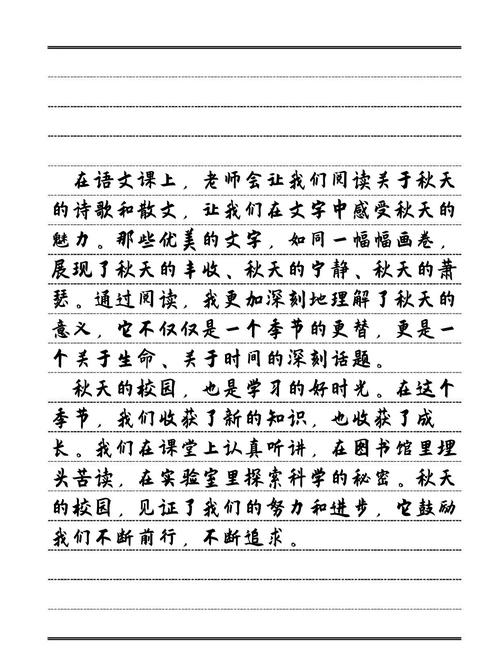 在语文课上，老师会让我们阅读关于秋天
的诗歌和散文，让我们在文字中感受秋天的
魅力。那些优美的文字，如同一幅幅画卷，
展现了秋天的丰收、秋天的宁静、秋天的萧
瑟。通过阅读，我更加深刻地理解了秋天的
意义，它不仅仅是一个季节的更替，更是一
个关于生命、关于时间的深刻话题。
秋天的校园，也是学习的好时光。在这个
季节，我们收获了新的知识，也收获了成
长。我们在课堂上认真听讲，在图书馆里埋
头苦读，在实验室里探索科学的秘密。秋天
的校园，见证了我们的努力和进步，它鼓励
我们不断前行，不断追求。